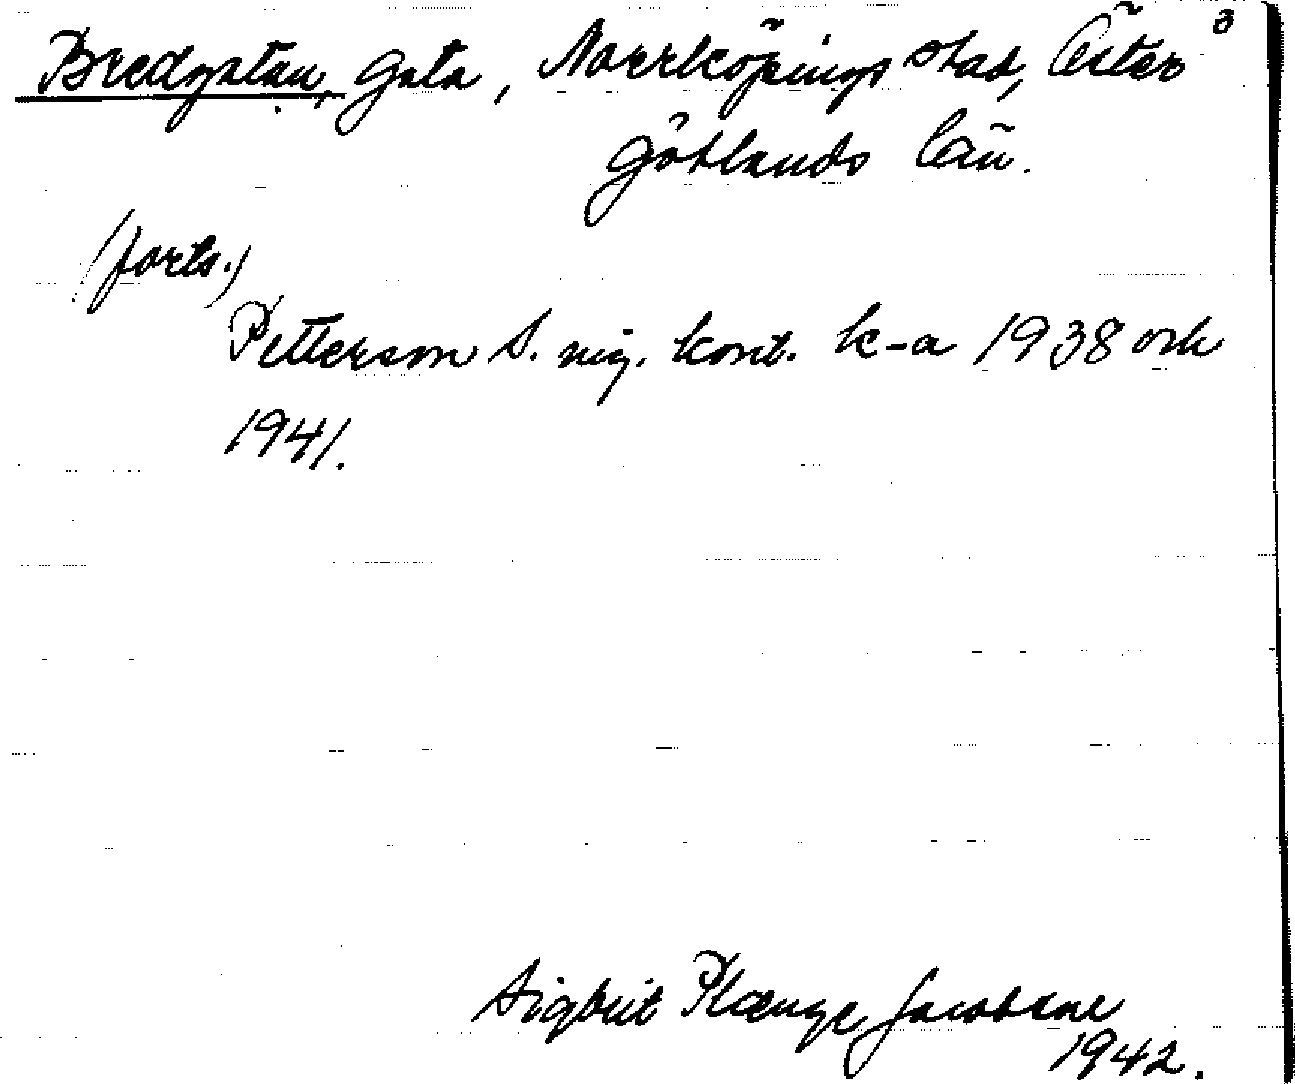 Bredgatan, gata, Norrköpings stad, Öster 3
götlands län.
(forts.)
Petterson S. ing. kont. k-a 1938 och
1941.
Sigbrit Plænge Jacobson
1942.